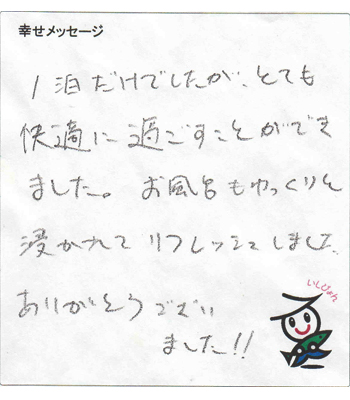 幸せメッセージ
1泊だけでしたが、とても
快適に過ごすことができ
ました。お風呂もゆっくりと
浸かれてリフレッシュしました
ありがとうござい
ました!!
いしぴょん